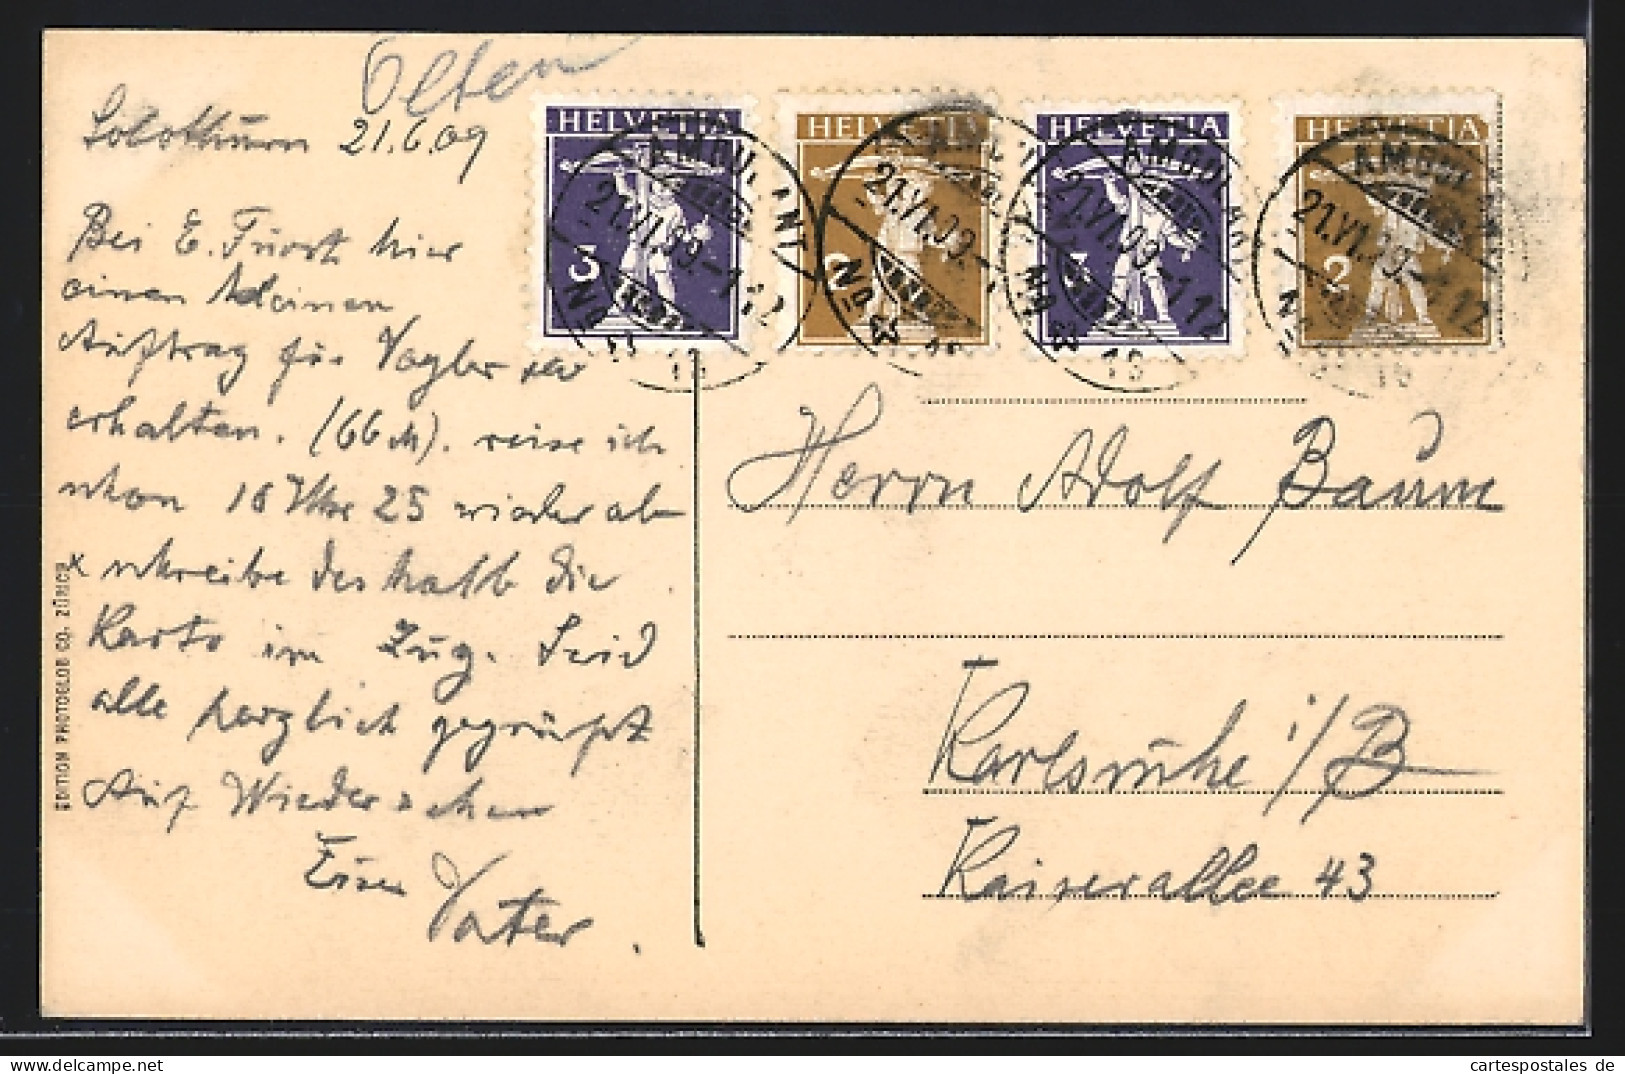 Olten
Solothurn 21.6.09
HELVETIA
HELVETIA
HELVETIA
HELVETIA
3
2
3
2
AMBULANT
21.VI.09.-112
No
Bei E. hier
einen kleinen
Auftrag für Vogler
erhalten. (66 M). reise ich
schon 10 Uhr 25 wieder ab
x schreibe deshalb die
Karte im Zug. Seid
alle herzlich gegrüßt
Auf Wiedersehen
Euer Vater.
Herrn Adolf Baum
Karlsruhe i/B
Kaiserallee 43
EDITION PHOTOGLOB CO. ZÜRICH
cartespostales de